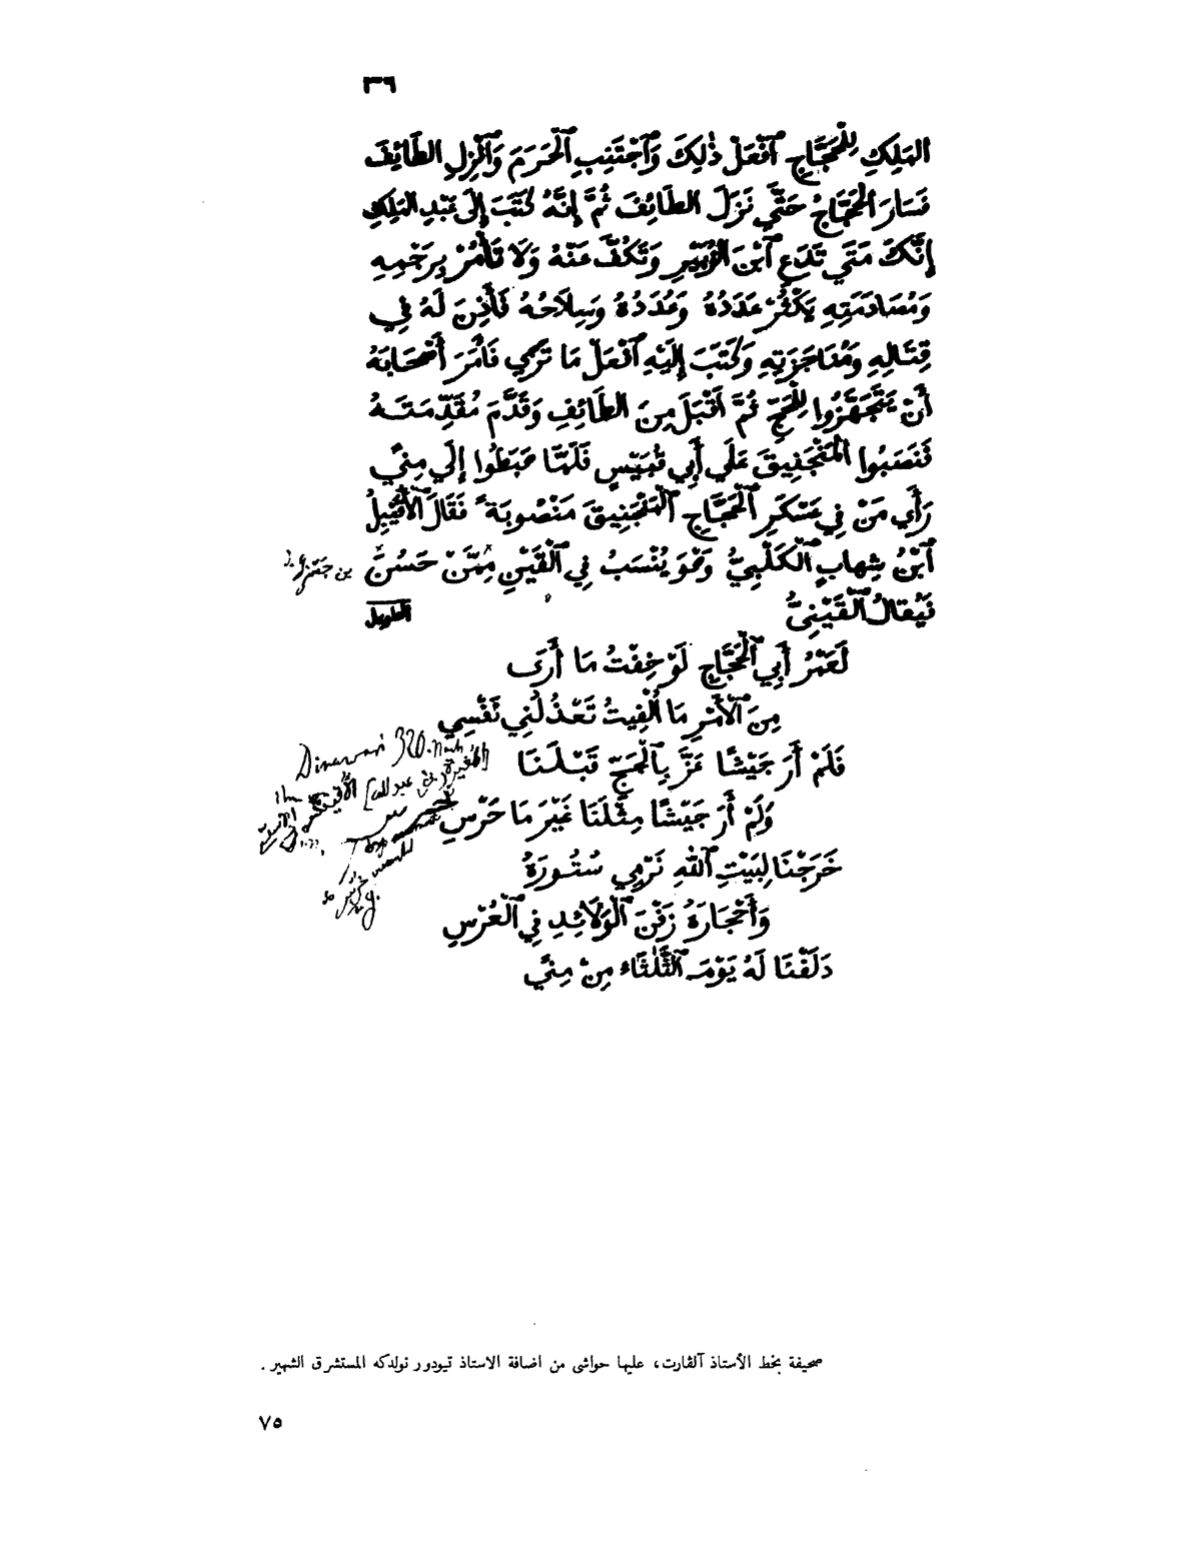 ٣٦
المَلِكِ لِلْحَجَّاجِ ٱفْعَلْ ذٰلِكَ وَٱجْتَنِبِ ٱلْحَرَمَ وَٱنْزِلِ الطَّائِفَ
فَسَارَ الْحَجَّاجُ حَتَّي نَزَلَ الطَّائِفَ ثُمَّ إِنَّهُ كَتَبَ إِلَى عَبْدِ المَلِكِ
إِنَّكَ مَتَي تَدَعِ ٱبْنَ الزُّبَيْرِ وَتَكُفَّ عَنْهُ وَلَا تَأْمُرْ بِرَجْمِهِ
وَمُصَادَمَتِهِ يَكْثُرْ عَدَدُهُ وَعُدَدُهُ وَسِلَاحُهُ فَأْذَنْ لَهُ فِي
قِتَالِهِ وَمُنَاجَزَتِهِ وَكَتَبَ إِلَيْهِ ٱفْعَلْ مَا تَرَي فَأَمَرَ أَصْحَابَهُ
أَنْ يَتَجَهَّزُوا لِلْحَجِّ ثُمَّ أَقْبَلَ مِنَ الطَّائِفِ وَقَدَّمَ مُقَدِّمَتَهُ
فَنَصَبُوا الْمَنْجَنِيقَ عَلَي أَبِي قُبَيْسٍ فَلَمَّا هَبَطُوا إِلَي مِنًي
رَأَي مَنْ فِي عَسْكَرِ ٱلْحَجَّاجِ ٱلْمَنْجَنِيقَ مَنْصُوبَةً فَقَالَ ٱلْأُقَيْبِلُ
ٱبْنُ شِهابٍ ٱلْكَلْبِيُّ وَهْوَ يُنْسَبُ فِي ٱلْقَيْنِ مِمَّنْ حَسُنَ بن جسر
فَيُقالُ ٱلْقَيْنِيُّ الطويل
لَعَمْرُ أَبِي ٱلْحَجَّاجِ لَوْ خِفْتُ مَا أَرَى
مِنَ ٱلْأَمْرِ مَا أُلْفِيتُ تَعْذُلُنِي نَفْسِي
فَلَمْ أَرَ جَيْشًا عَزَّ بِٱلْحَجِّ قَبْلَنَا
وَلَمْ أَرَ جَيْشًا مِثْلَنَا غَيْرَ مَا خَرْسِ
خَرَجْنَا لِبَيْتِ ٱللّٰهِ نَرْمِي سُتُورَهُ
وَأَحْجَارَهُ زَفْنَ ٱلْوَلَائِدِ فِي ٱلْعُرْسِ
دَلَفْنَا لَهُ يَوْمَ ٱلثَّلٰثَاءِ مِنْ مِنًي
Dinawari 320.
صحيفة بخط الأستاذ آلڤارت، عليها حواشى من اضافة الاستاذ تيودور نولدكه المستشرق الشهير .
٧٥